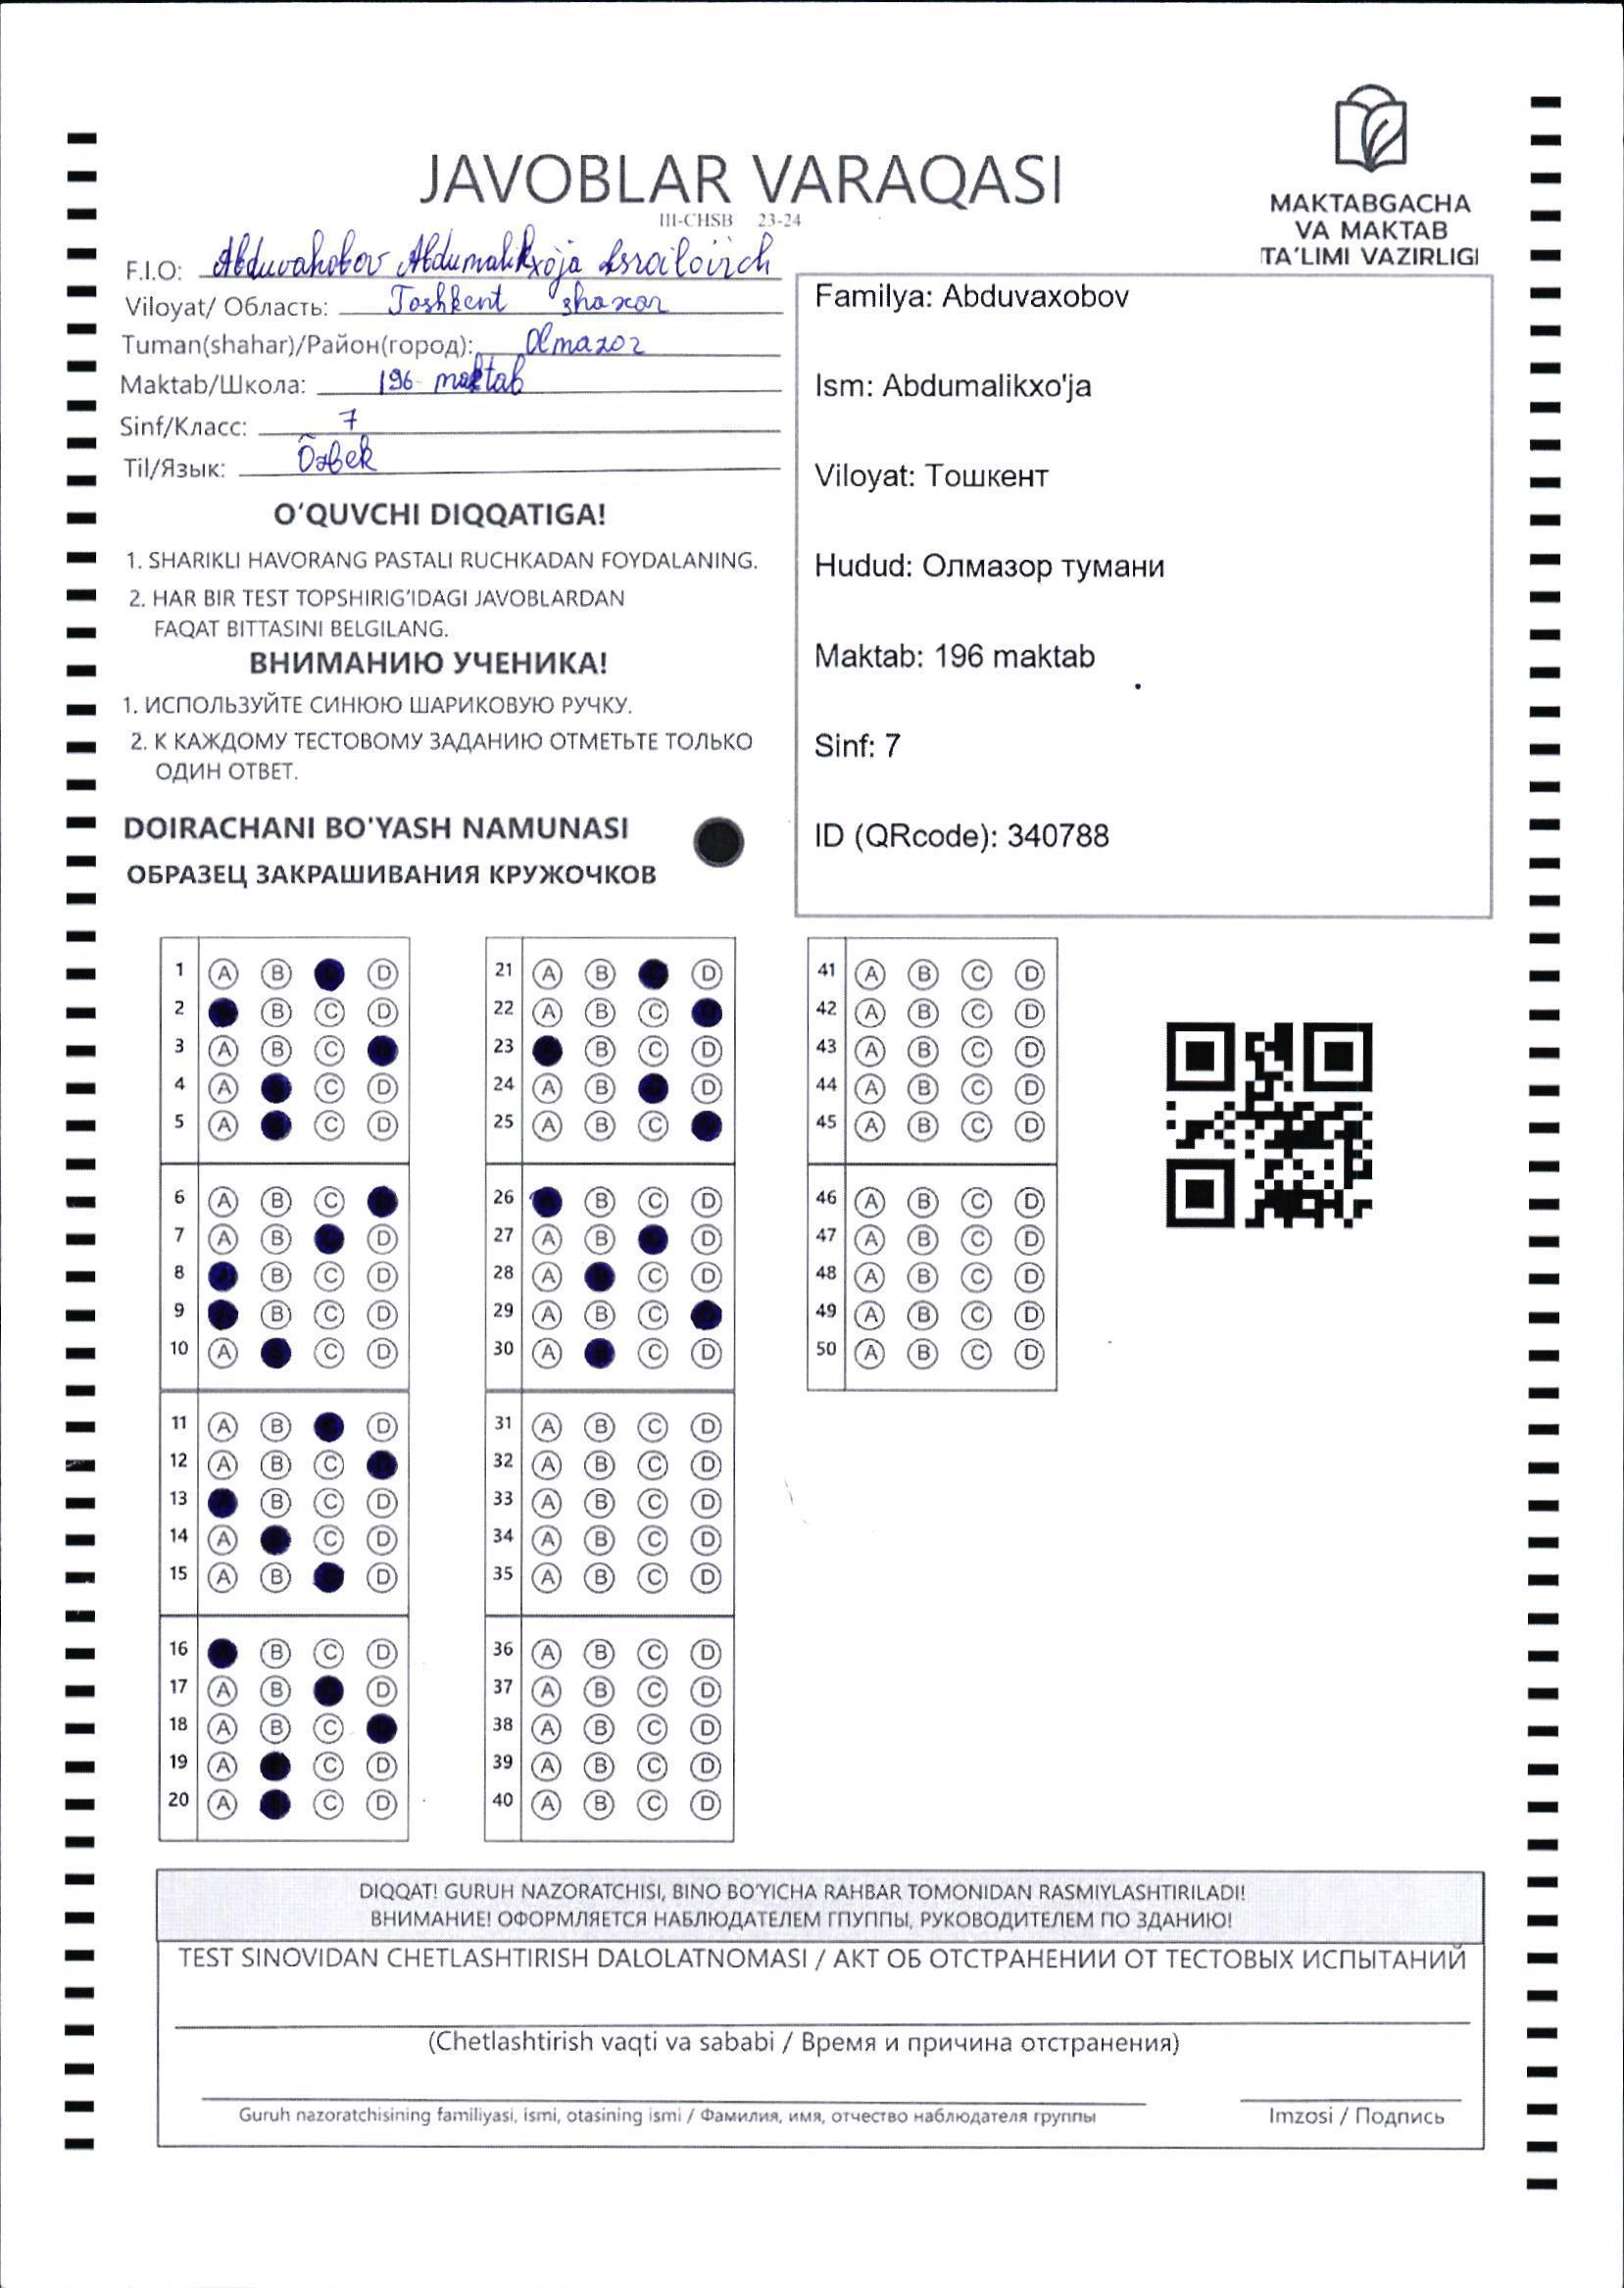 JAVOBLAR VARAQASI
III-CHSB 23-24
MAKTABGACHA
VA MAKTAB
TA'LIMI VAZIRLIGI
F.I.O: Abduvahobov Abdumalikxo'ja Isroilovich
Viloyat/ Область: Toshkent shaxar
Tuman(shahar)/Район(город): Olmazor
Maktab/Школа: 196 maktab
Sinf/Класс: 7
Til/Язык: Õzbek
Familya: Abduvaxobov
Ism: Abdumalikxo'ja
Viloyat: Тошкент
Hudud: Олмазор тумани
Maktab: 196 maktab
Sinf: 7
ID (QRcode): 340788
O'QUVCHI DIQQATIGA!
1. SHARIKLI HAVORANG PASTALI RUCHKADAN FOYDALANING.
2. HAR BIR TEST TOPSHIRIG'IDAGI JAVOBLARDAN
FAQAT BITTASINI BELGILANG.
ВНИМАНИЮ УЧЕНИКА!
1. ИСПОЛЬЗУЙТЕ СИНЮЮ ШАРИКОВУЮ РУЧКУ.
2. К КАЖДОМУ ТЕСТОВОМУ ЗАДАНИЮ ОТМЕТЬТЕ ТОЛЬКО
ОДИН ОТВЕТ.
DOIRACHANI BO'YASH NAMUNASI
ОБРАЗЕЦ ЗАКРАШИВАНИЯ КРУЖОЧКОВ
1 A B D
2 B C D
3 A B C
4 A C D
5 A C D
6 A B C
7 A B D
8 B C D
9 B C D
10 A C D
11 A B D
12 A B C
13 B C D
14 A C D
15 A B D
16 B C D
17 A B D
18 A B C
19 A C D
20 A C D
21 A B D
22 A B C
23 B C D
24 A B D
25 A B C
26 B C D
27 A B D
28 A C D
29 A B C
30 A C D
31 A B C D
32 A B C D
33 A B C D
34 A B C D
35 A B C D
36 A B C D
37 A B C D
38 A B C D
39 A B C D
40 A B C D
41 A B C D
42 A B C D
43 A B C D
44 A B C D
45 A B C D
46 A B C D
47 A B C D
48 A B C D
49 A B C D
50 A B C D
DIQQAT! GURUH NAZORATCHISI, BINO BO'YICHA RAHBAR TOMONIDAN RASMIYLASHTIRILADI!
ВНИМАНИЕ! ОФОРМЛЯЕТСЯ НАБЛЮДАТЕЛЕМ ГПУППЫ, РУКОВОДИТЕЛЕМ ПО ЗДАНИЮ!
TEST SINOVIDAN CHETLASHTIRISH DALOLATNOMASI / АКТ ОБ ОТСТРАНЕНИИ ОТ ТЕСТОВЫХ ИСПЫТАНИЙ
(Chetlashtirish vaqti va sababi / Время и причина отстранения)
Guruh nazoratchisining familiyasi, ismi, otasining ismi / Фамилия, имя, отчество наблюдателя группы
Imzosi / Подпись